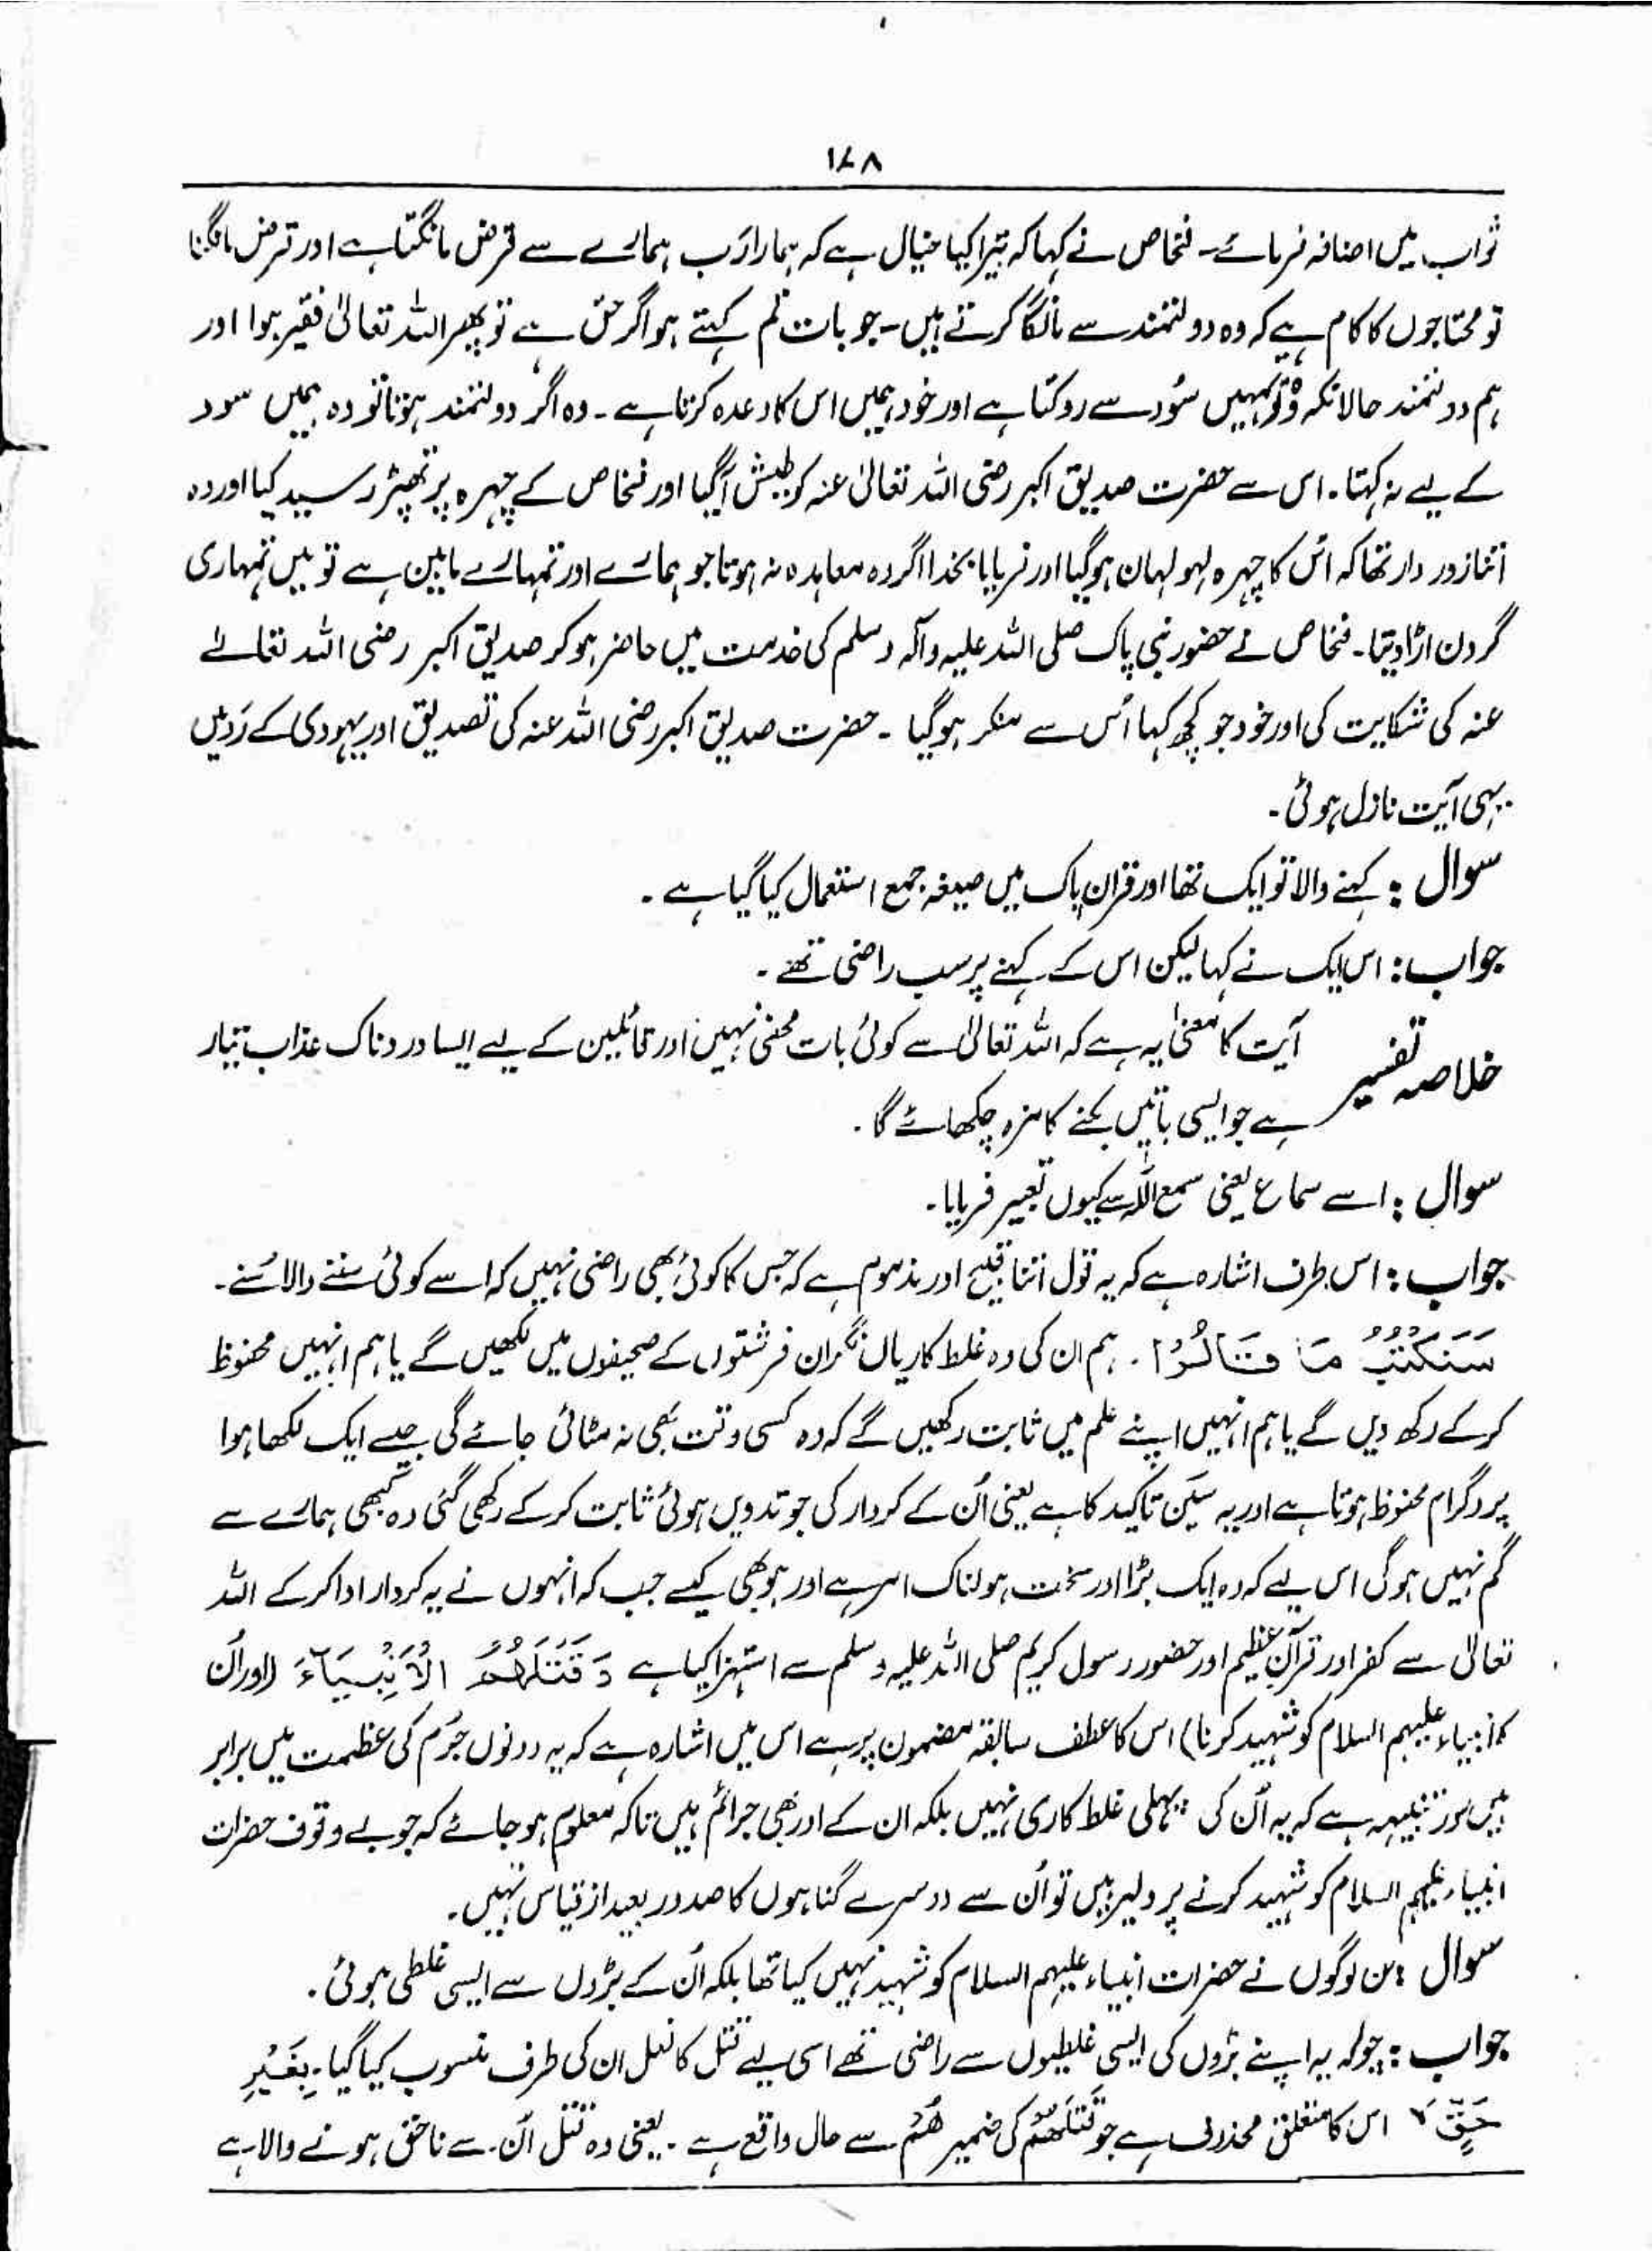 ۱۷۸
ثواب میں اضافہ فرمائے۔ فنحاص نے کہا کہ تیرا کیا خیال ہے کہ ہمارا رَب ہمارے سے قرض مانگتا ہے اور قرض مانگنا
تو محتاجوں کا کام ہے کہ وہ دولتمند سے مانگا کرتے ہیں۔ جو بات تم کہتے ہو اگر حق ہے تو پھر اللہ تعالیٰ فقیر ہوا اور
ہم دولتمند حالانکہ وہ تو تمہیں سُود سے روکتا ہے اور خود ہمیں اس کا وعدہ کرتا ہے۔ وہ اگر دولتمند ہوتا تو وہ ہمیں سود
کے لیے نہ کہتا۔ اس سے حضرت صدیق اکبر رضی اللہ تعالیٰ عنہ کو طیش آگیا اور فنحاص کے چہرہ پر تھپڑ رسید کیا اور وہ
اتنا زور دار تھا کہ اُس کا چہرہ لہولہان ہوگیا اور فرمایا بخدا اگر وہ معاہدہ نہ ہوتا جو ہمارے اور تمہارے مابین ہے تو میں تمہاری
گردن اڑا دیتا۔ فنحاص نے حضور نبی پاک صلی اللہ علیہ وآلہ وسلم کی خدمت میں حاضر ہو کر صدیق اکبر رضی اللہ تعالے
عنہ کی شکایت کی اور خود جو کچھ کہا اُس سے منکر ہوگیا۔ حضرت صدیق اکبر رضی اللہ عنہ کی تصدیق اور یہودی کے رَد میں
یہی آیت نازل ہوئی۔
سوال : کہنے والا تو ایک تھا اور قرآن پاک میں صیغہ جمع استعمال کیا گیا ہے۔
جواب : اس ایک نے کہا لیکن اس کے کہنے پر سب راضی تھے۔
خلاصہ تفسیر آیت کا معنیٰ یہ ہے کہ اللہ تعالیٰ سے کوئی بات مخفی نہیں اور قائلین کے لیے ایسا دردناک عذاب تیار
ہے جو ایسی باتیں بکنے کا مزہ چکھائے گا۔
سوال : اسے سماع یعنی سمع اللہ سے کیوں تعبیر فرمایا۔
جواب : اس طرف اشارہ ہے کہ یہ قول اتنا قبیح اور مذموم ہے کہ جس کا کوئی بھی راضی نہیں کہ اسے کوئی سننے والا سُنے۔
سَنَكْتُبُ مَا قَالُوْا۔ ہم ان کی وہ غلط کاریاں نگران فرشتوں کے صحیفوں میں لکھیں گے یا ہم انہیں محفوظ
کرکے رکھ دیں گے یا ہم انہیں اپنے علم میں ثابت رکھیں گے کہ وہ کسی وقت بھی نہ مٹائی جائے گی جیسے ایک لکھا ہوا
پروگرام محفوظ ہوتا ہے اور یہ سین تاکید کا ہے یعنی اُن کے کردار کی جو تدوین ہوئی ثابت کرکے رکھی گئی وہ کبھی ہمارے سے
گم نہیں ہوگی اس لیے کہ وہ ایک بڑا اور سخت ہولناک امر ہے اور ہو بھی کیسے جب کہ انہوں نے یہ کردار ادا کرکے اللہ
تعالیٰ سے کفر اور قرآن عظیم اور حضور رسول کریم صلی اللہ علیہ وسلم سے استہزا کیا ہے وَقَتْلَهُمُ الْاَنْۢبِيَآءَ (اور اُن
کا انبیاء علیہم السلام کو شہید کرنا) اس کا عطف سابقہ مضمون پر ہے اس میں اشارہ ہے کہ یہ دونوں جُرم کی عظمت میں برابر
ہیں اور تنبیہہ ہے کہ یہ اُن کی پہلی غلط کاری نہیں بلکہ ان کے اور بھی جرائم ہیں تاکہ معلوم ہو جائے کہ جو بے وقوف حضرات
انبیاء علیہم السلام کو شہید کرنے پر دلیر ہیں تو اُن سے دوسرے گناہوں کا صدور بعید از قیاس نہیں۔
سوال : ان لوگوں نے حضرات انبیاء علیہم السلام کو شہید نہیں کیا تھا بلکہ اُن کے بڑوں سے ایسی غلطی ہوئی۔
جواب : چونکہ یہ اپنے بڑوں کی ایسی غلطیوں سے راضی تھے اسی لیے قتل کا فعل ان کی طرف منسوب کیا گیا۔ بِغَيْرِ
حَقٍّ ۙ اس کا متعلق محذوف ہے جو قَتْلَهُمْ کی ضمیر هُمْ سے حال واقع ہے۔ یعنی وہ قتل اُن سے ناحق ہونے والا ہے